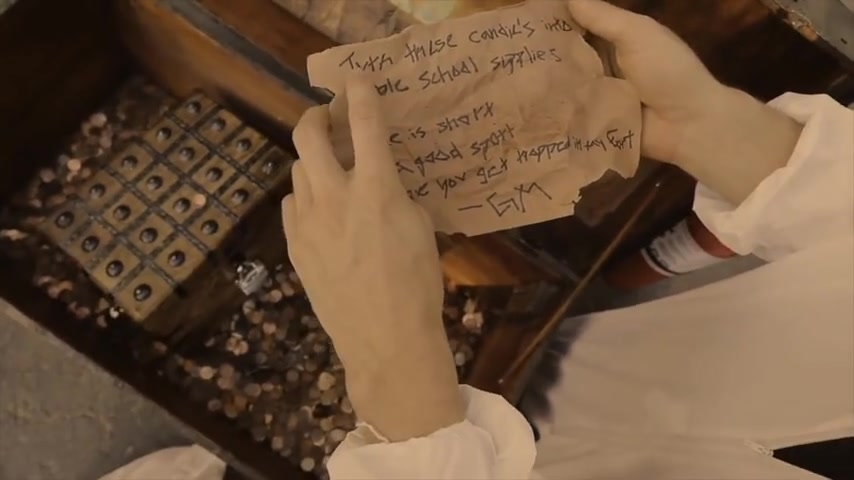 Turn these candle's into
ble school supplies
e is short
a good spot
e you get trapped in my Fort
- GM